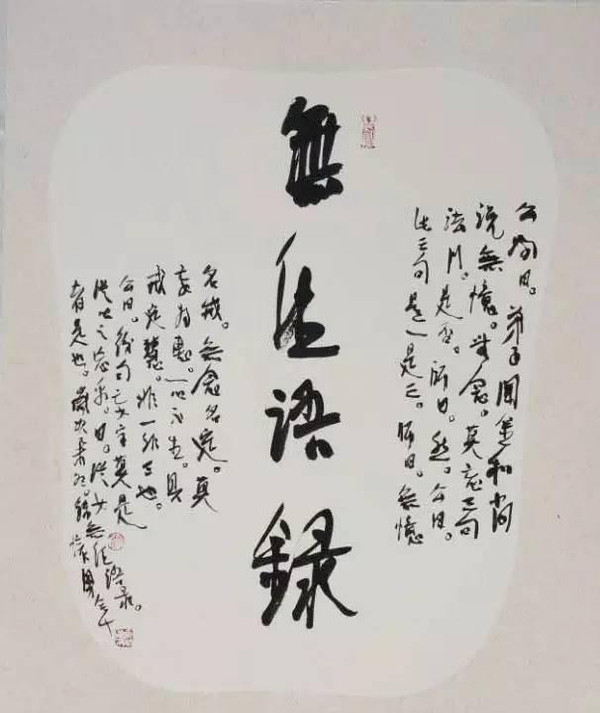 公問曰。弟子聞金和尚
説無憶。無念。莫妄三句
法門。是否。師曰。然。公曰。
此三句是一是三。師曰。無憶
無住語錄
名戒。無念名定。莫
妄為惠。一心不生。具
戒定慧。非一非三也。
公曰。後句妄字莫是
從心之忘乎。曰。從女
者是也。歲次
錄無住語录。